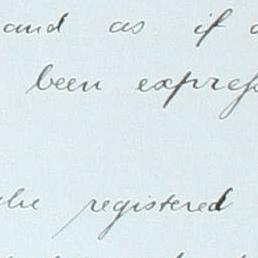 and as if
been expres
the registered